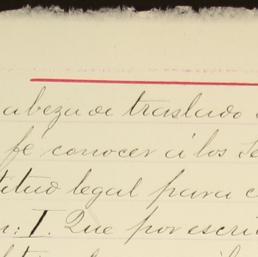 abeza de traslado
fe conocer á los Se
titud legal para c
n: I. Que por escri